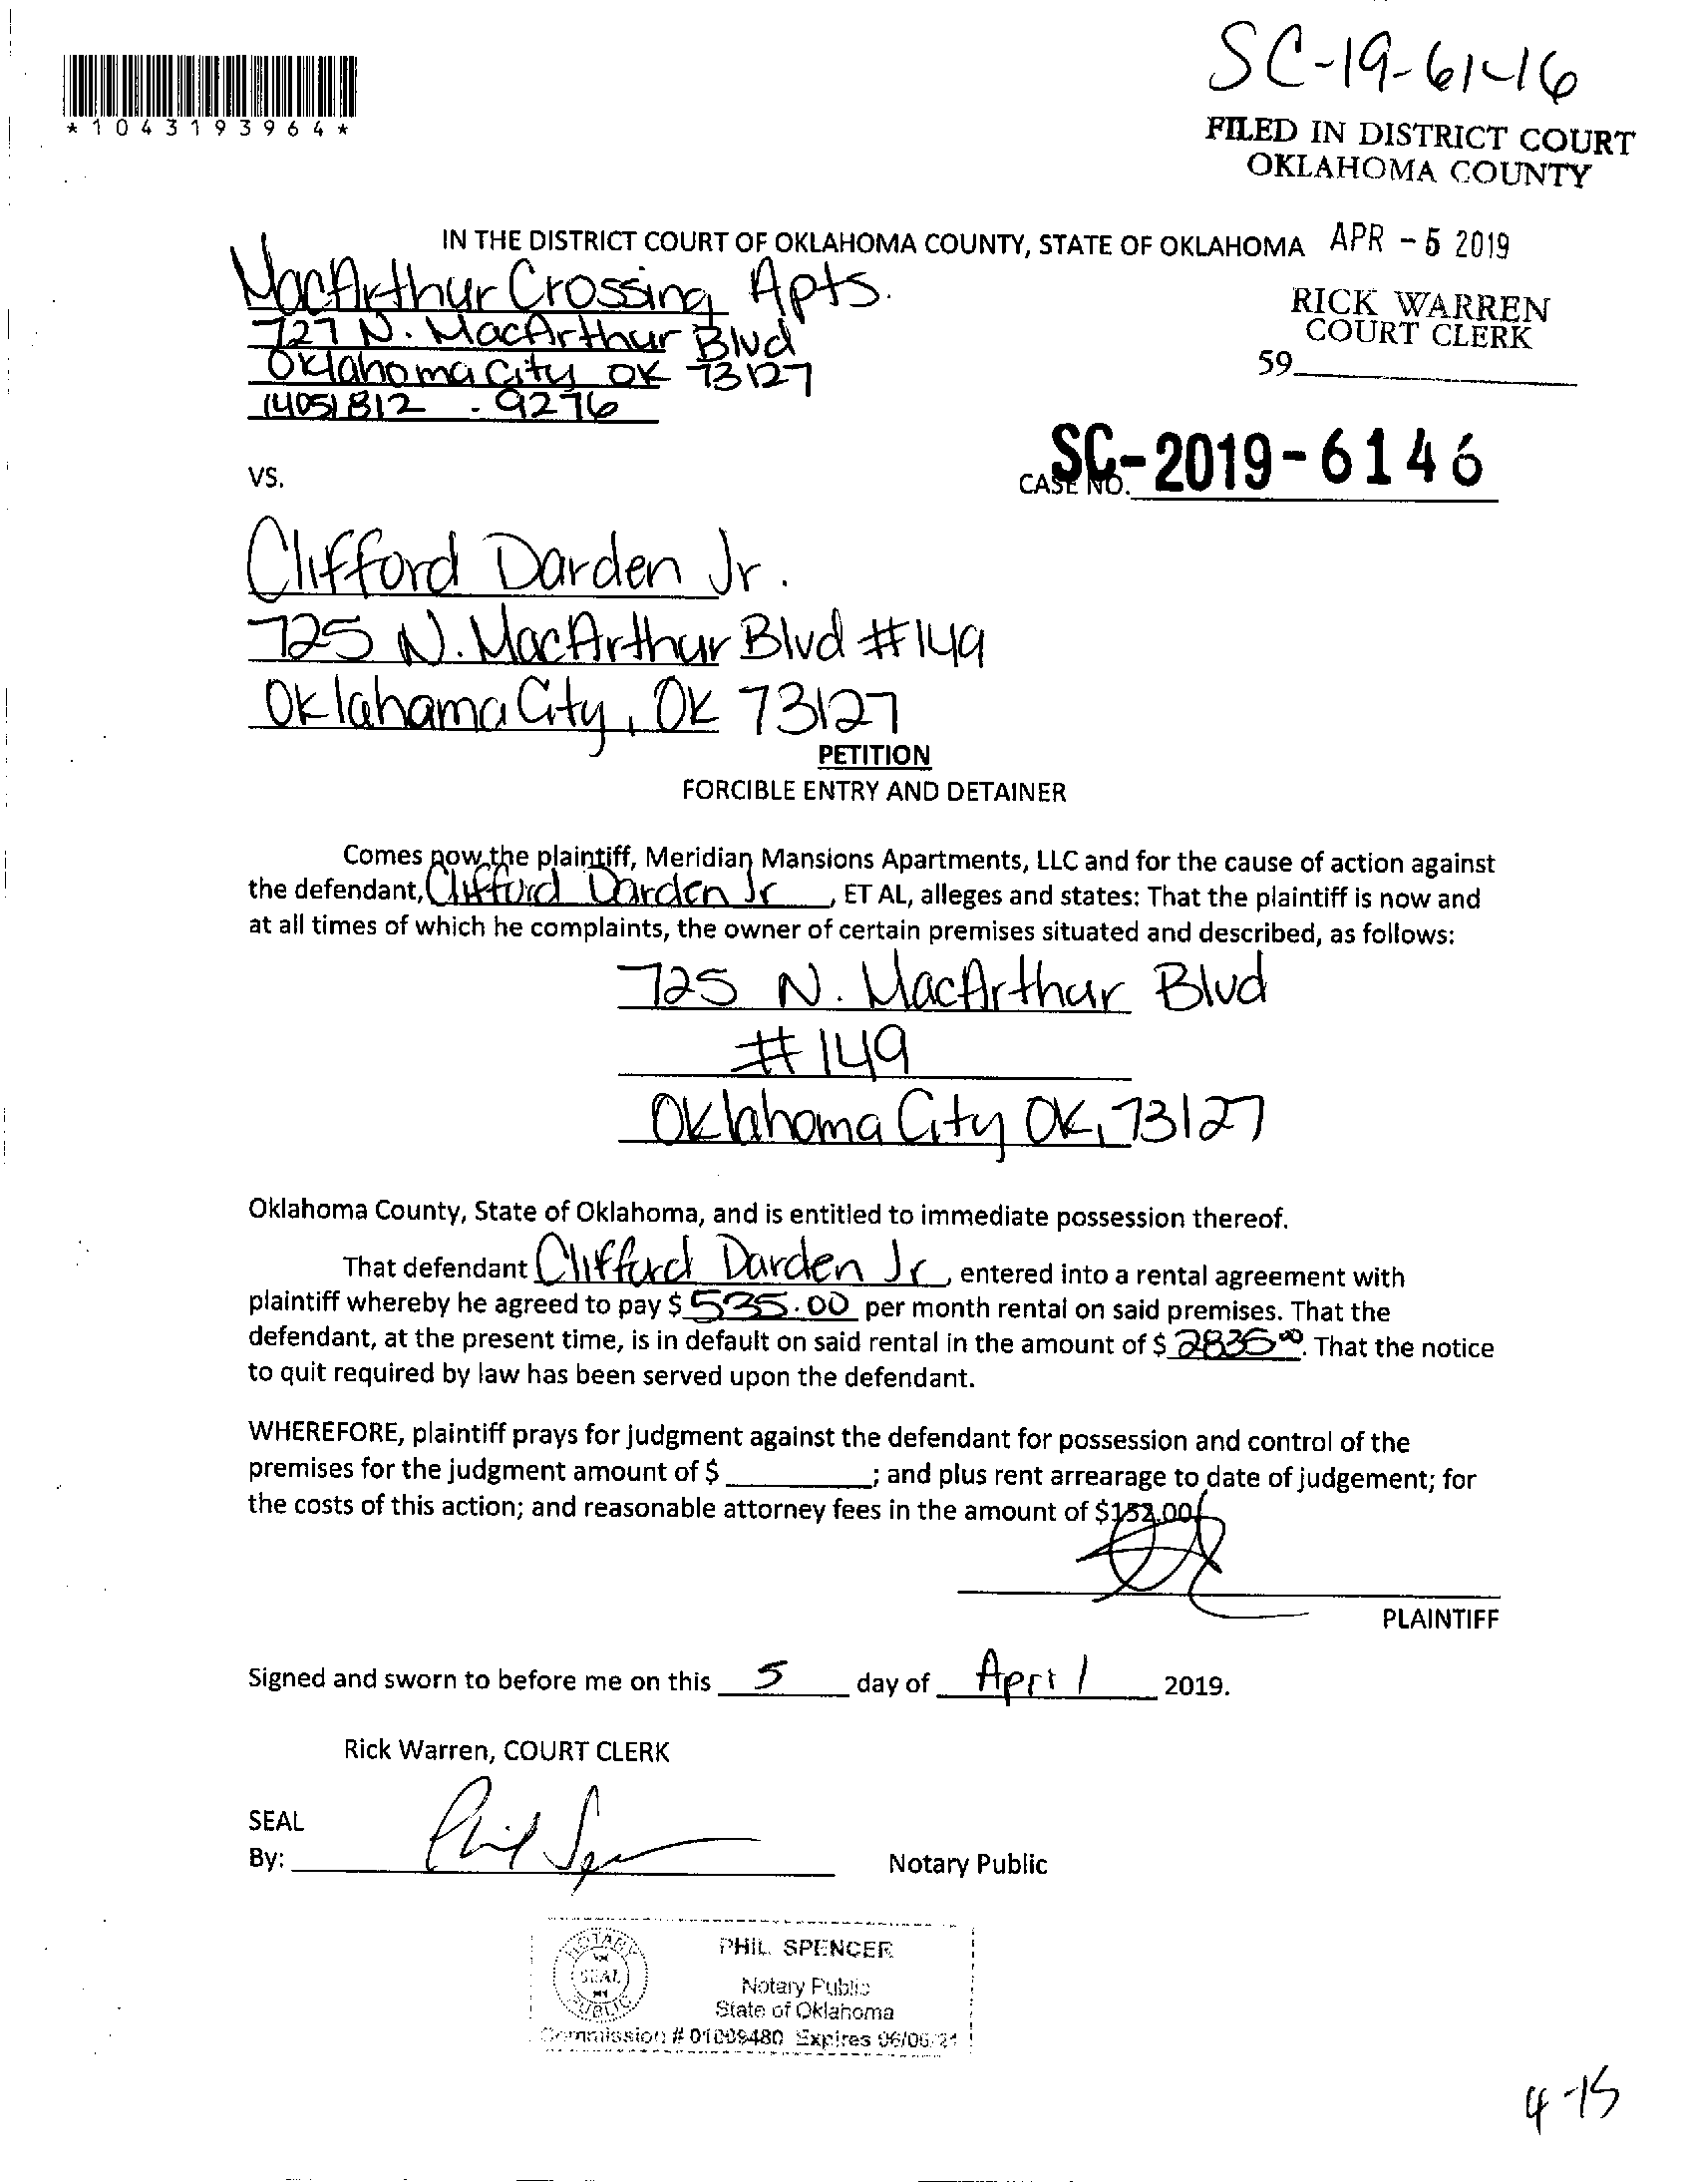 SC-19-6146
*1043193964*
FILED IN DISTRICT COURT
OKLAHOMA COUNTY
IN THE DISTRICT COURT OF OKLAHOMA COUNTY, STATE OF OKLAHOMA APR - 5 2019
MacArthur Crossing Apts.
727 N. MacArthur Blvd
Oklahoma City OK 73127
(405) 812 - 9276
RICK WARREN
COURT CLERK
59
VS.
CASE NO. SC-2019-6146
Clifford Darden Jr.
725 N. MacArthur Blvd #149
Oklahoma City, OK 73127
PETITION
FORCIBLE ENTRY AND DETAINER
Comes now the plaintiff, Meridian Mansions Apartments, LLC and for the cause of action against
the defendant, Clifford Darden Jr, ET AL, alleges and states: That the plaintiff is now and
at all times of which he complaints, the owner of certain premises situated and described, as follows:
725 N. MacArthur Blvd
#149
Oklahoma City OK, 73127
Oklahoma County, State of Oklahoma, and is entitled to immediate possession thereof.
That defendant Clifford Darden Jr, entered into a rental agreement with
plaintiff whereby he agreed to pay $ 535.00 per month rental on said premises. That the
defendant, at the present time, is in default on said rental in the amount of $ 2835 00. That the notice
to quit required by law has been served upon the defendant.
WHEREFORE, plaintiff prays for judgment against the defendant for possession and control of the
premises for the judgment amount of $ ; and plus rent arrearage to date of judgement; for
the costs of this action; and reasonable attorney fees in the amount of $152.00
PLAINTIFF
Signed and sworn to before me on this 5 day of April 2019.
Rick Warren, COURT CLERK
SEAL
By: Phil Spencer Notary Public
NOTARY PUBLIC SEAL
PHIL SPENCER
Notary Public
State of Oklahoma
Commission # 01009480 Expires 06/06/21
4-15